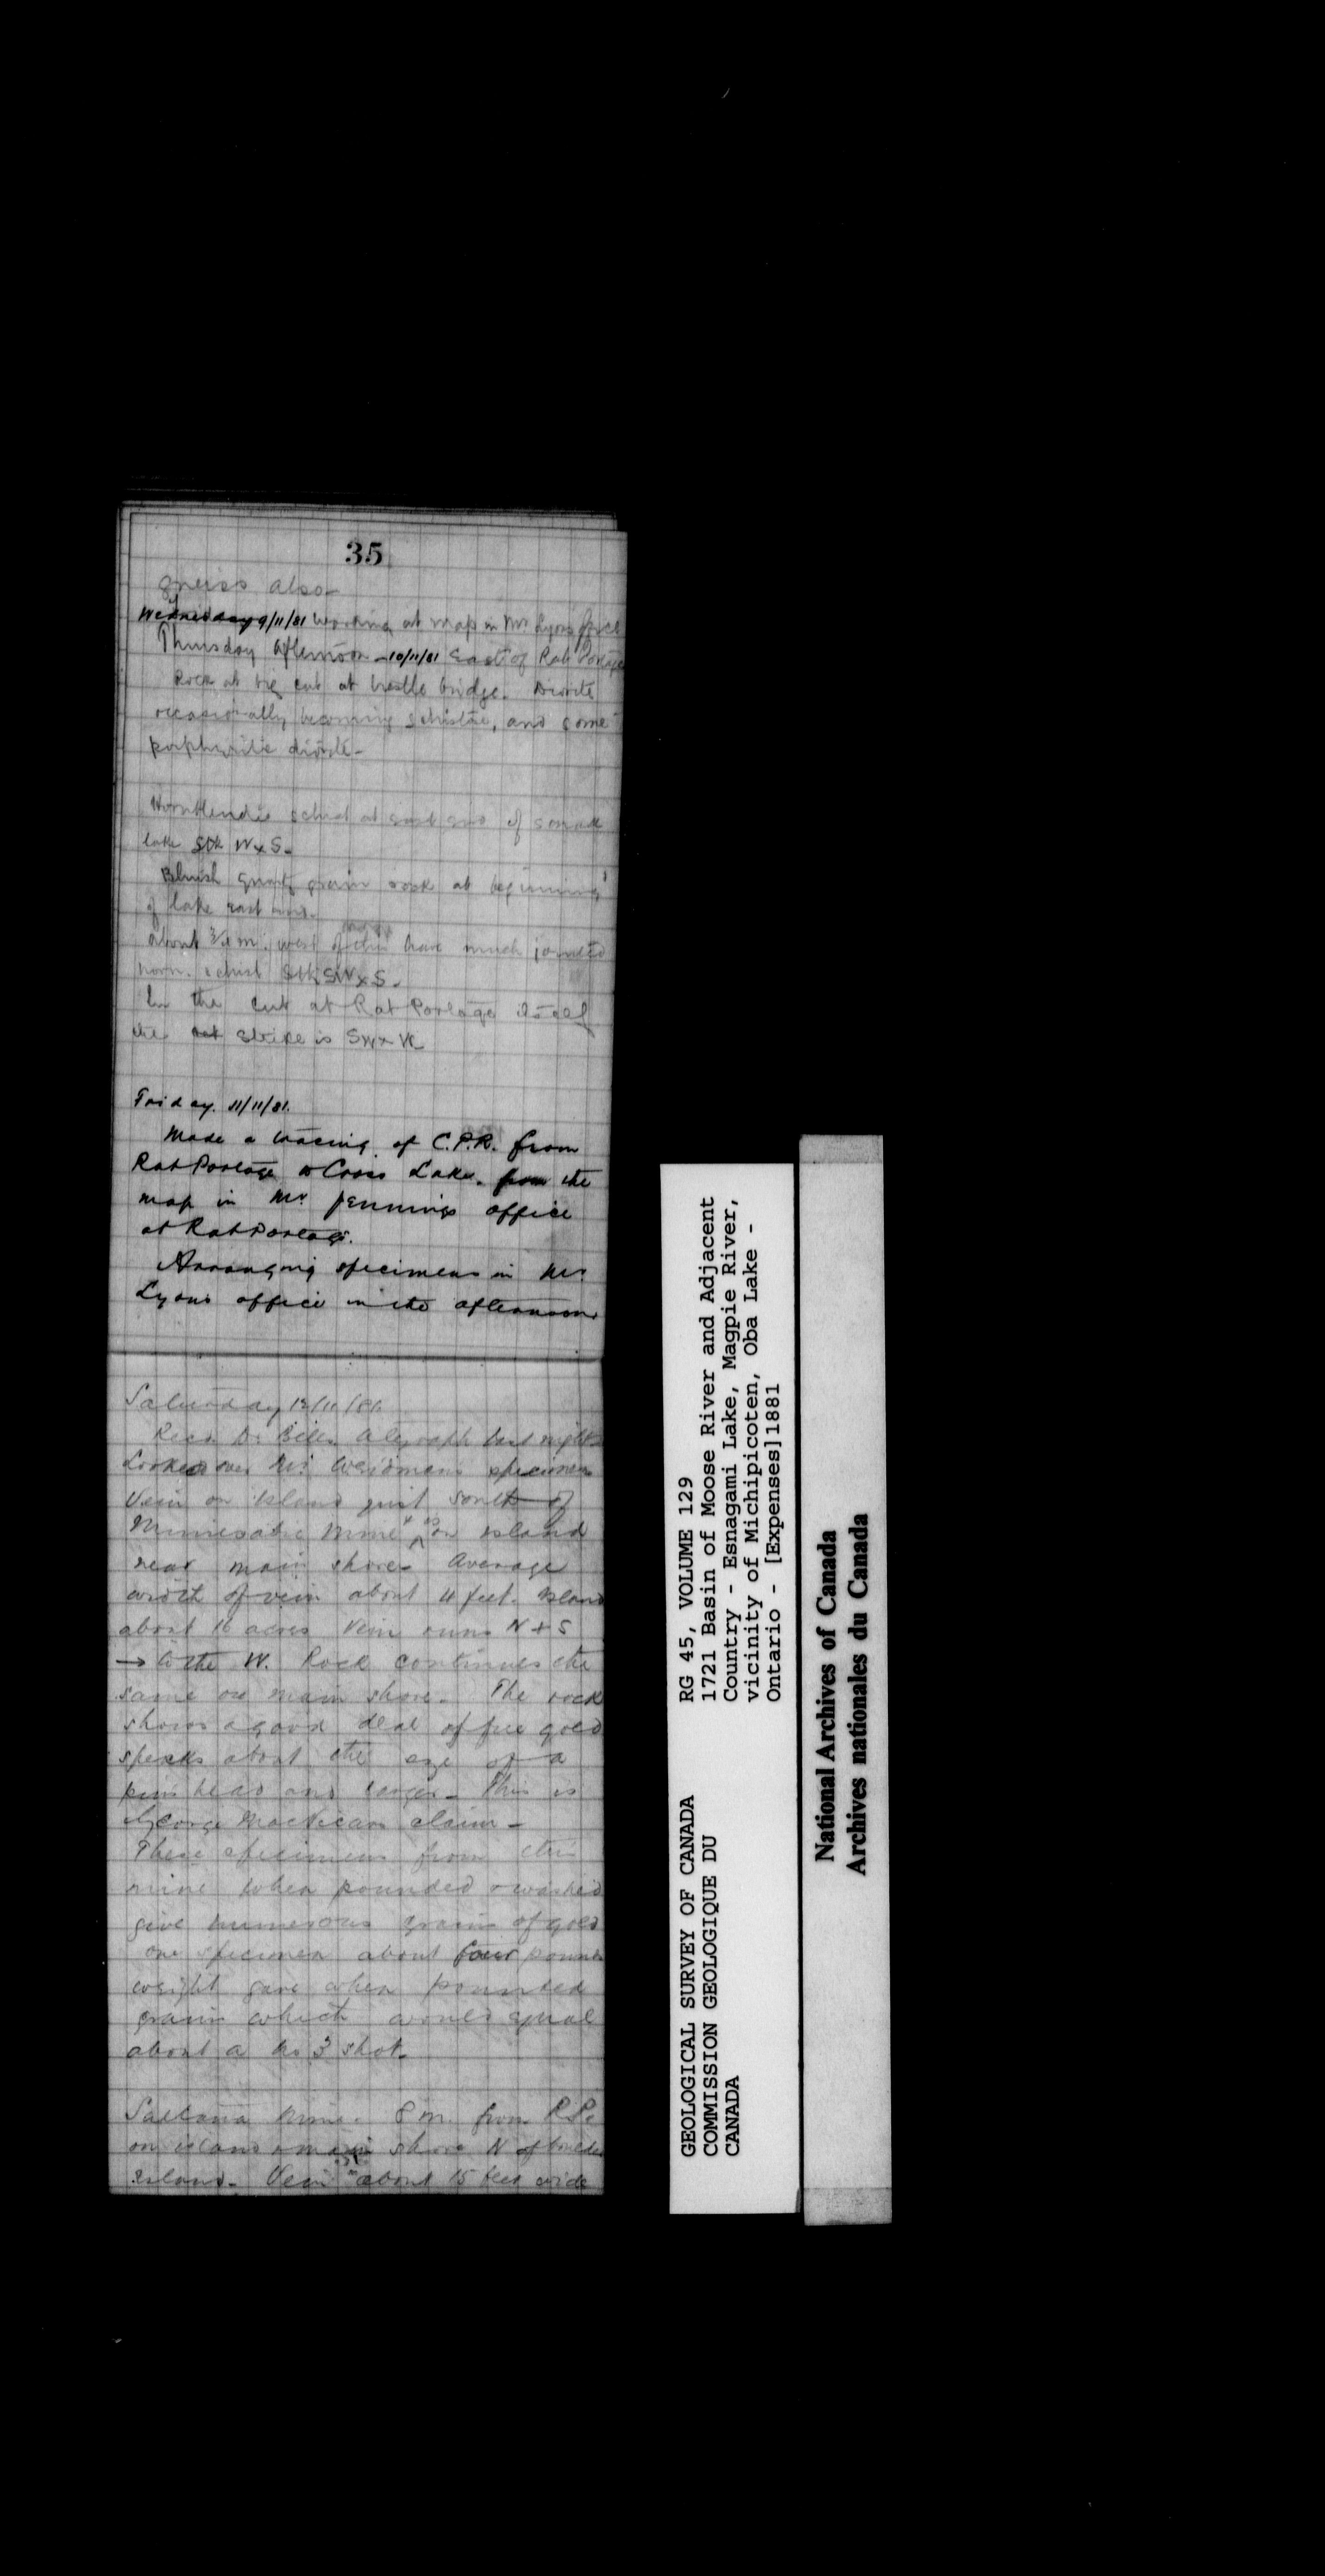 35
gneiss also
Wednesday 9/11/81 working at map in Mr Lyons office
Thursday afternoon - 10/11/81 East of Rat Portage
Rock at big cut at trestle bridge. Diorite
occasionally becoming schistose, and some
porphyritic diorite -
Hornblendic schist at east end of small
lake Stk W x S.
Bluish quartz grain rock at beginning
of lake east end.
about 3/4 m. west of this have much jointed
horn. schist Stk SW x S.
In the cut at Rat Portage itself
the strike is SW x W
Friday. 11/11/81.
Made a tracing of C.P.R. from
Rat Portage to Cross Lake. from the
map in Mr Jennings office
at Rat Portage.
Arranging specimens in Mr
Lyons office in the afternoon
Saturday 12/11/81.
Recd. Dr. Bells telegraph last night
Looked over Mr. Weidmans specimens
Vein on Island just south of
Minnesabic Mine & is on island
near main shore. Average
width of vein about 4 feet. Island
about 16 acres Vein runs N & S
→ to the W. Rock continues the
same on main shore. The rock
shows a good deal of free gold
specks about the size of a
pins head and larger - This is
George MacVicars claim -
These specimens from this
mine when pounded & washed
give numerous grains of gold
one specimen about four pounds
weight gave when pounded
grains which would equal
about a No 3 shot.
Sultana Mine. 8 m. from R.P.
on island & main shore N of
Island. Vein about 15 feet wide
RG 45, VOLUME 129
1721 Basin of Moose River and Adjacent
Country - Esnagami Lake, Magpie River,
vicinity of Michipicoten, Oba Lake -
Ontario - [Expenses]1881
GEOLOGICAL SURVEY OF CANADA
COMMISSION GEOLOGIQUE DU
CANADA
National Archives of Canada
Archives nationales du Canada